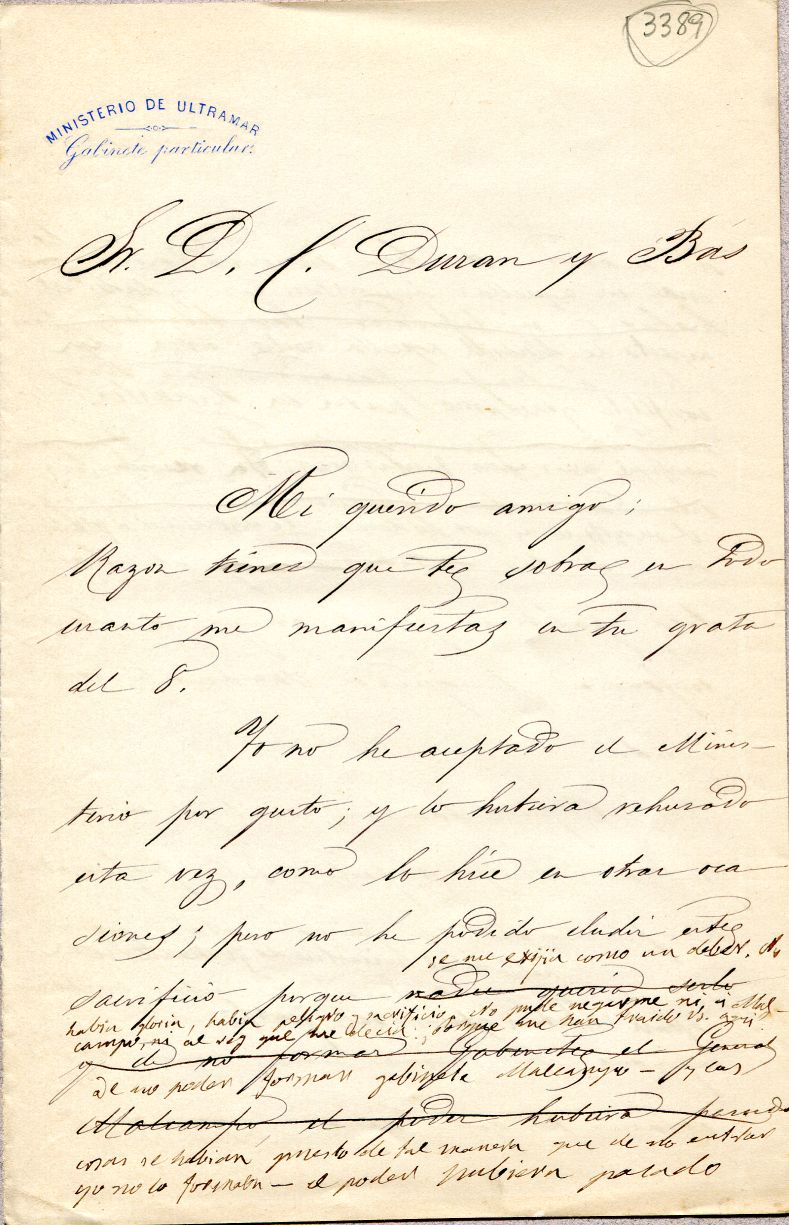 3389
MINISTERIO DE ULTRAMAR
Gabinete particular.
Sr. D. C. Duran y Bás
Mi querido amigo;
Razon tienes que te sobra en todo
cuanto me manifiestas en tu grata
del 8.
Yo no he aceptado el Minis-
terio por gusto; y lo hubiera rehusado
esta vez, como lo hice en otras oca
siones; pero no he podido eludir este
se me exijia como un deber. No
sacrificio porque nadie queria serlo
habia gloria, habia peligro y sacrificio. No pude negarme ni a Mal-
campo, ni al Rey que me decia: porque me han traido Vs. aqui
y de no formar Gabinete el General
De no poder formar gabinete Malcampo — y las
Malcampo, el poder hubiera pasado
cosas se habian puesto de tal manera que de no entrar
yo no lo formaba — el poder hubiera pasado